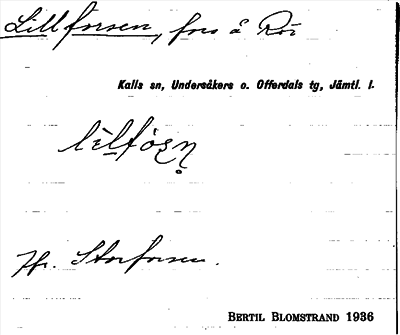 Lillforsen, fors å Roi
Kalls sn, Undersåkers o. Offerdals tg, Jämtl. l.
Jfr. Storforsen.
BERTIL BLOMSTRAND 1936